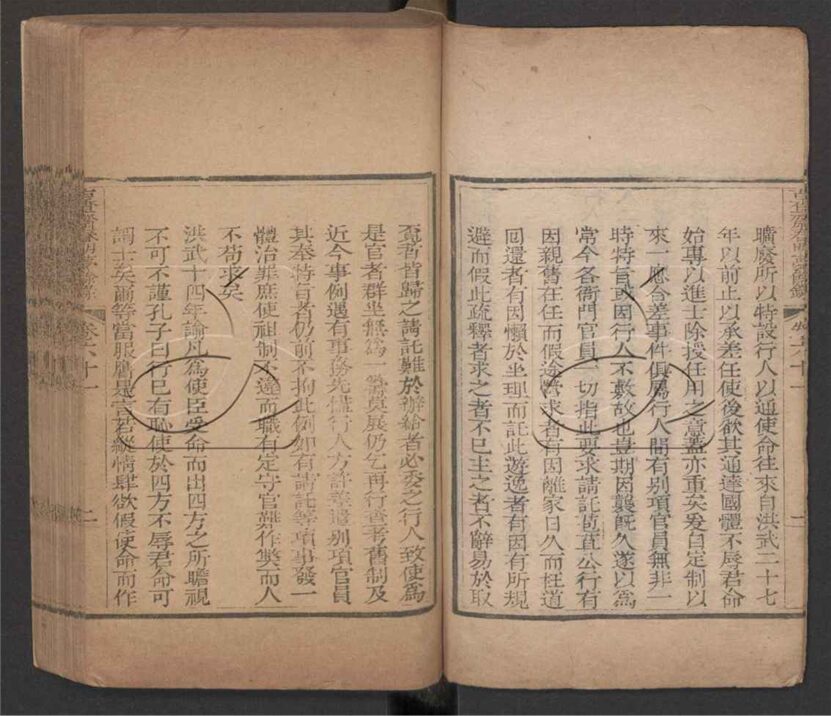 曠廢所以特設行人以通使命往來自洪武二十七
年以前止以承差任使後欲其通達國體不辱君命
始專以進士除授任用之意蓋亦重矣爰自定制以
來一應合差事件俱屬行人間有別項官員無非一
時特旨或因行人不敷故也豈期因襲旣久遂以爲
常今各衙門官員一切指此要求請託苞苴公行有
因親舊在任而假途營求者有因離家日久而枉道
囘還者有因懶於坐理而託此遊逸者有因有所規
避而假此疏釋者求之者不巳主之者不辭易於取
卷六十一
二
盃者皆歸之請託難於辦給者必委之行人致使爲
是官者群坐無爲一籌莫展仍乞再行查考舊制及
近今事例遇有事務先儘行人方許差遣別項官員
其奉特旨者仍前不拘此例如有請託等項事發一
體治罪庶使祖制不違而職有定守官難作獘而人
不苟求矣
洪武十四年諭凡爲使臣受命而出四方之所瞻視
不可不謹孔子曰行巳有恥使於四方不辱君命可
謂士矣爾等當服膺是言若縱情肆欲假使命而作
卷六十一
二